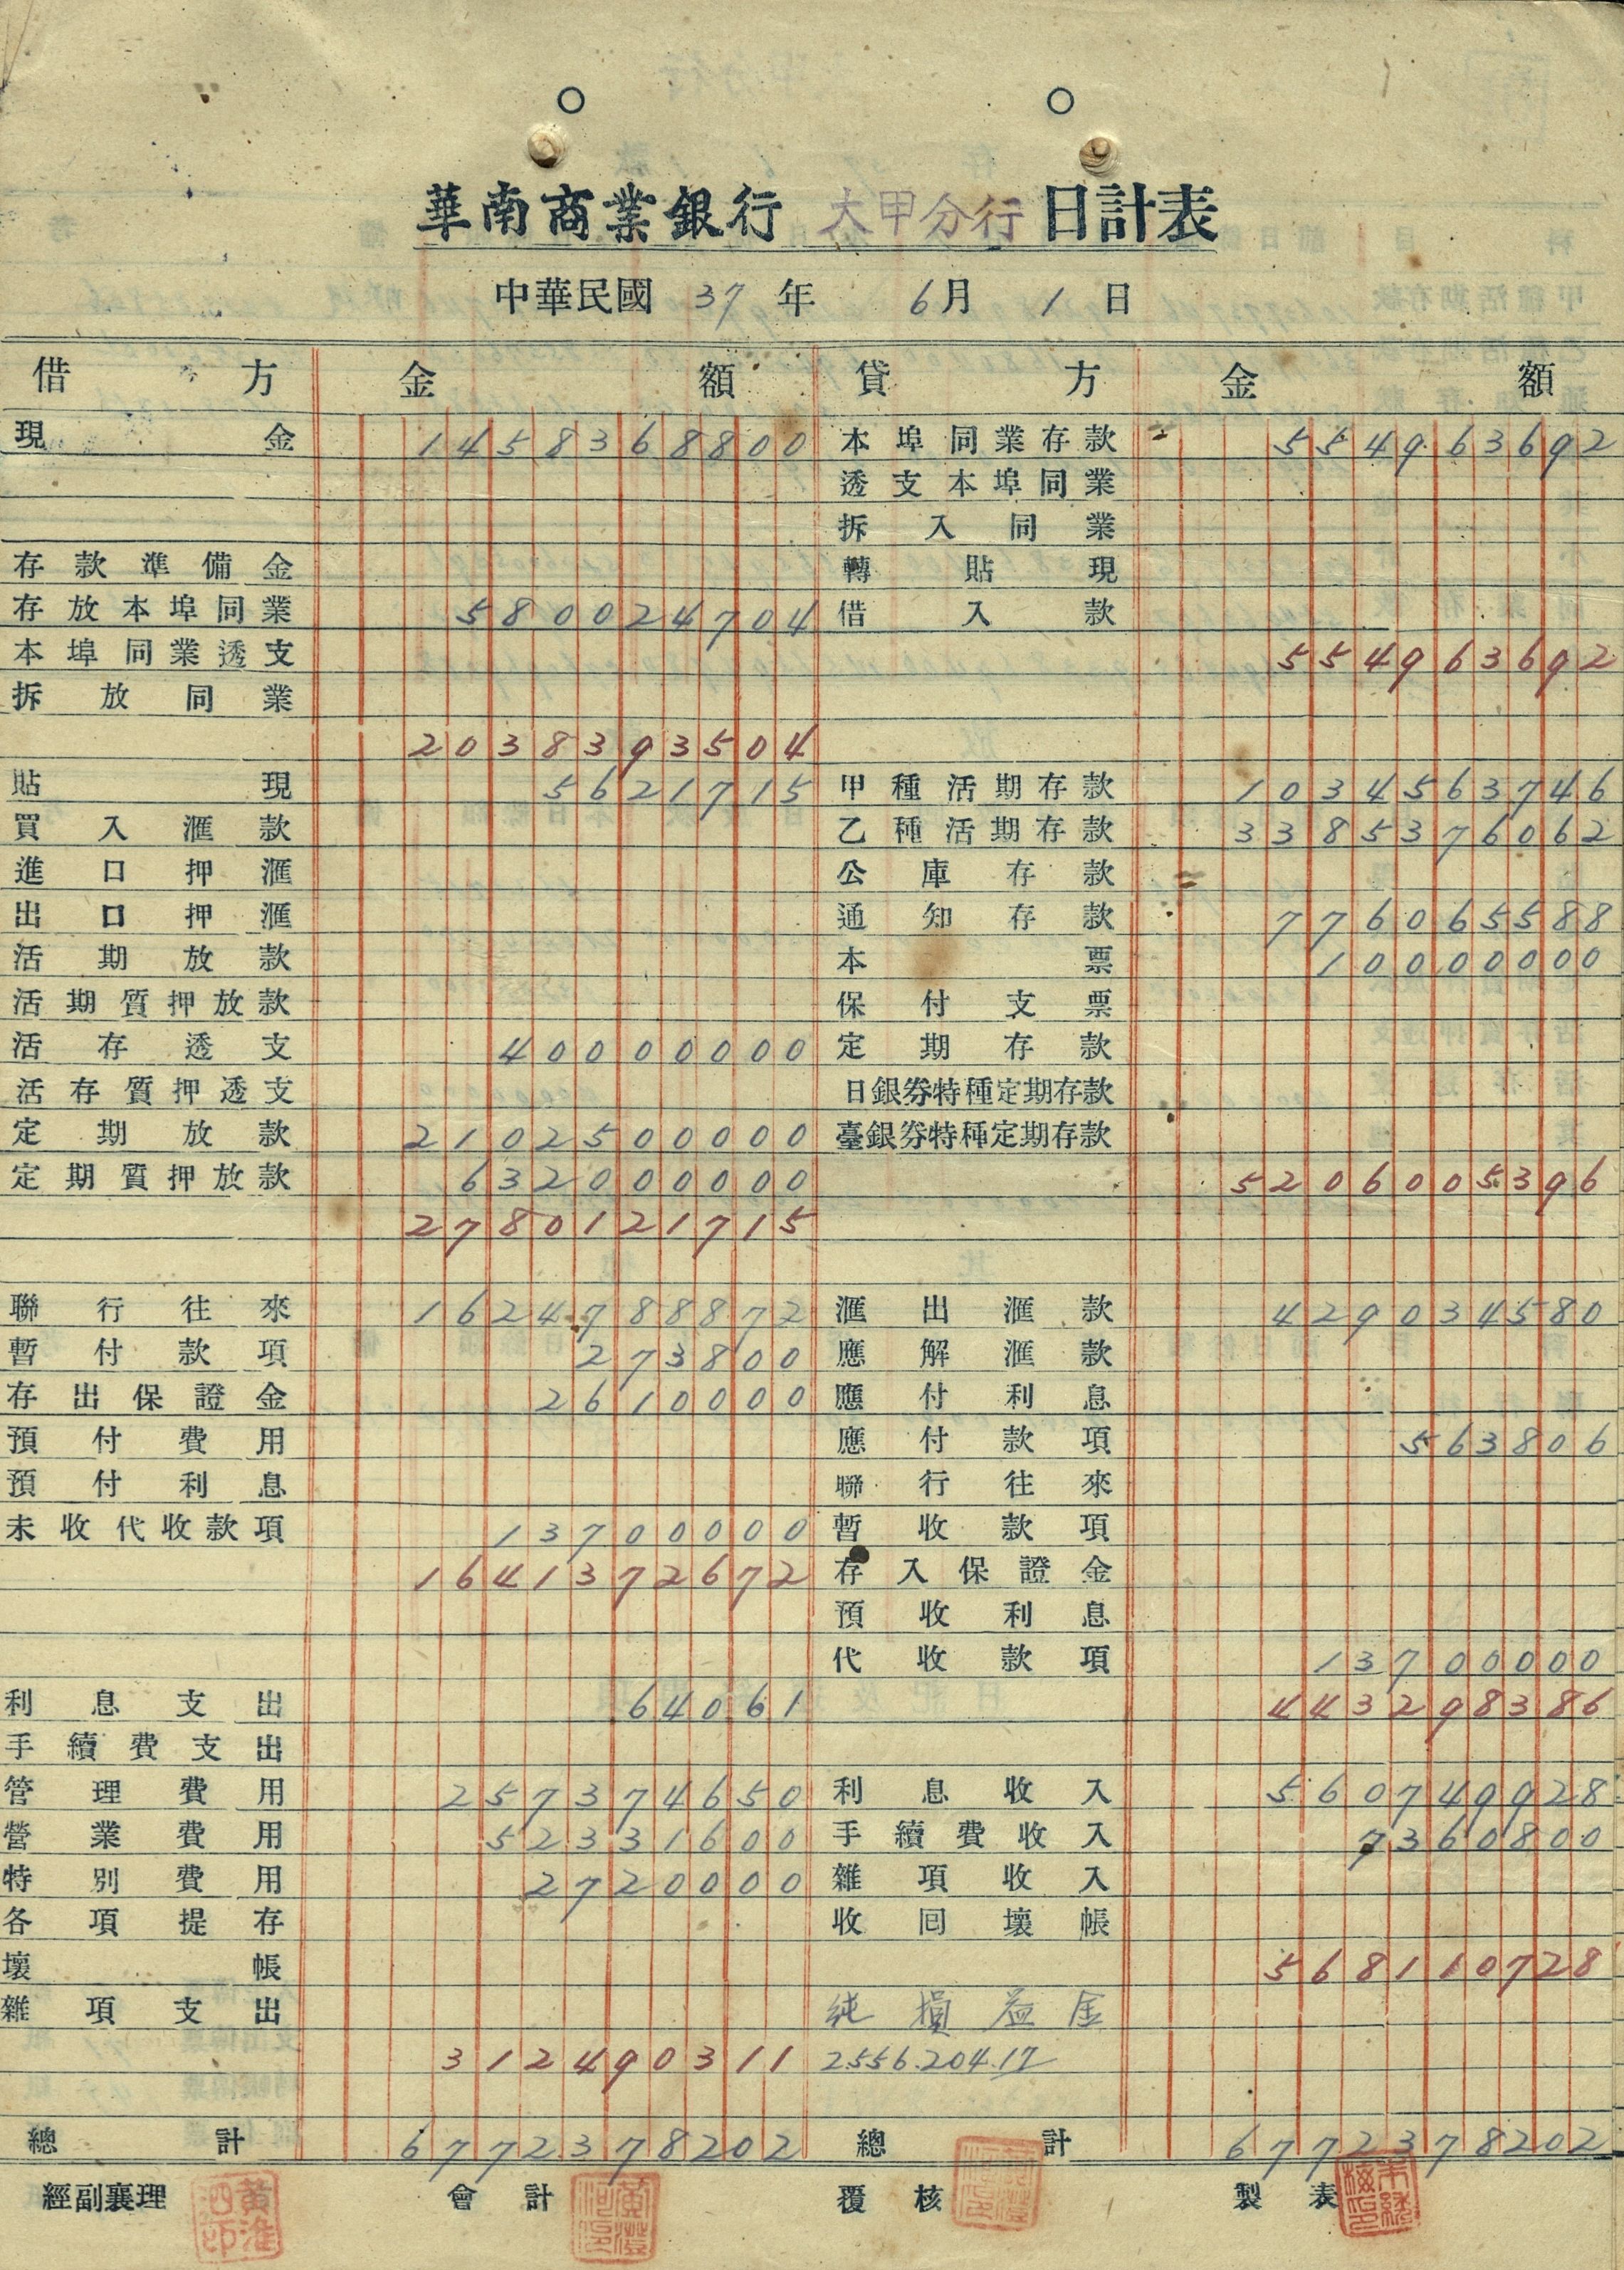 華南商業銀行 大甲分行 日計表
中華民國 37 年 6月 1 日
借方 金額 貸方 金額
現金 1458368800 本埠同業存款 554963692
透支本埠同業
拆入同業
存款準備金 轉貼現
存放本埠同業 580024704 借入款
本埠同業透支 554963692
拆放同業
2038393504
貼現 5621715 甲種活期存款 1034563746
買入滙款 乙種活期存款 3385376062
進口押滙 公庫存款
出口押滙 通知存款 776065588
活期放款 本票 10000000
活期質押放款 保付支票
活存透支 40000000 定期存款
活存質押透支 日銀券特種定期存款
定期放款 2102500000 臺銀券特種定期存款
定期質押放款 632000000 5206005396
2780121715
聯行往來 1624788872 滙出滙款 429034580
暫付款項 273800 應解滙款
存出保證金 2610000 應付利息
預付費用 應付款項 563806
預付利息 聯行往來
未收代收款項 13700000 暫收款項
1641372672 存入保證金
預收利息
代收款項 13700000
利息支出 64061 443298386
手續費支出
管理費用 257374650 利息收入 560749928
營業費用 52331600 手續費收入 7360800
特別費用 2720000 雜項收入
各項提存 收回壞帳
壞帳 568110728
雜項支出 純損益金
312490311 2556.204.17
總計 6772378202 總計 6772378202
經副襄理 會計 覆核 製表